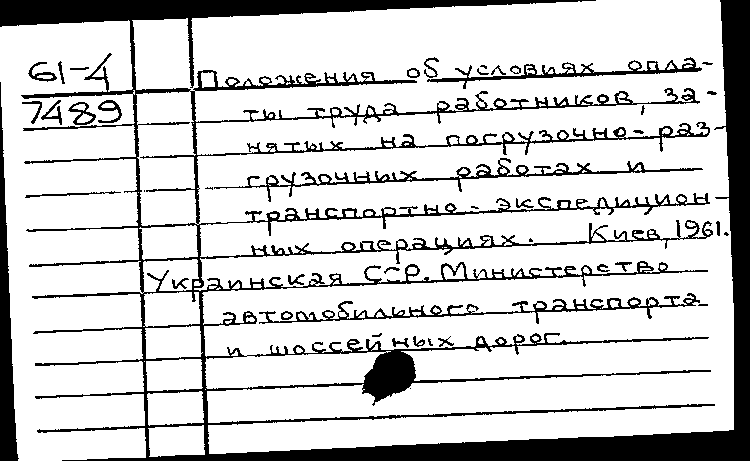 61-4 Положения об условиях опла-
7489 ты труда работников, за-
нятых на погрузочно-раз-
грузочных работах и
транспортно-экспедицион-
ных операциях. Киев, 1961.
Украинская ССР. Министерство
автомобильного транспорта
и шоссейных дорог.